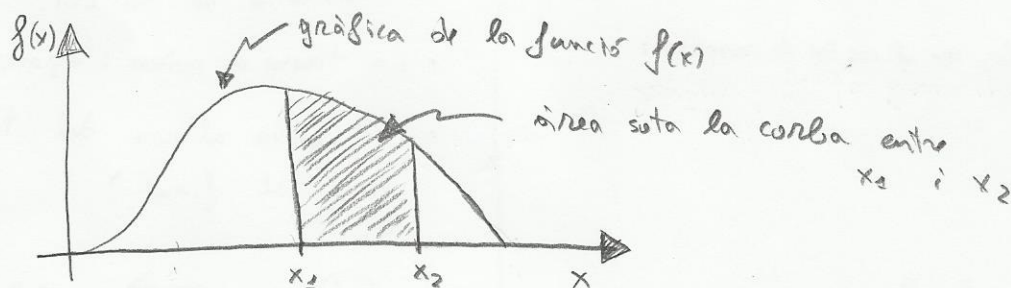 f(x)
gràfica de la funció f(x)
àrea sota la corba entre
x1 i x2
x1 x2 x